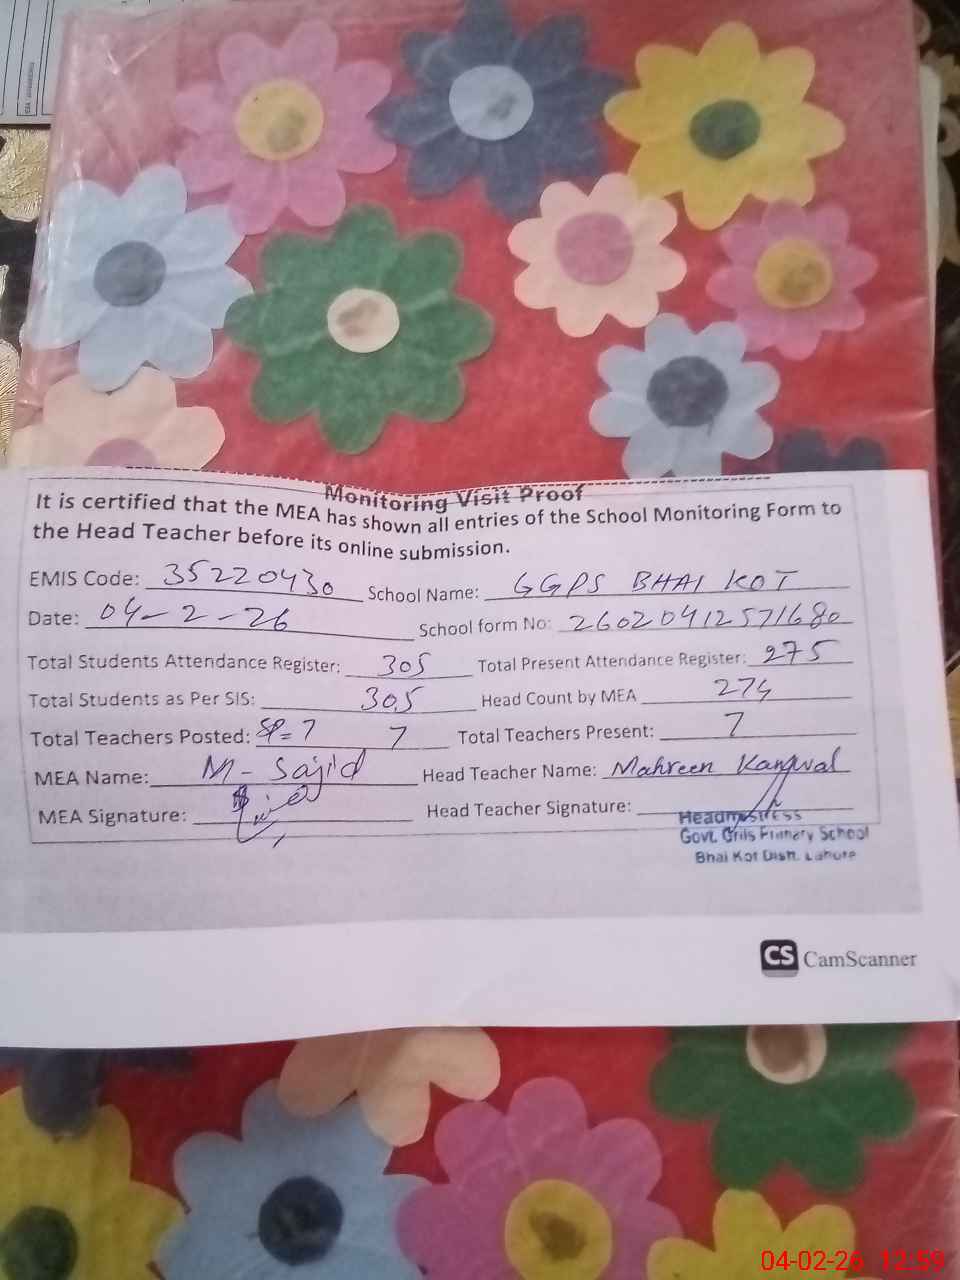 Monitoring Visit Proof
It is certified that the MEA has shown all entries of the School Monitoring Form to
the Head Teacher before its online submission.
EMIS Code: 35220430 School Name: GGPS BHAI KOT
Date: 04-2-26 School form No: 26020412571680
Total Students Attendance Register: 305 Total Present Attendance Register: 275
Total Students as Per SIS: 305 Head Count by MEA 274
Total Teachers Posted: SP=7 7 Total Teachers Present: 7
MEA Name: M-Sajid Head Teacher Name: Mahreen Kanwal
MEA Signature: Head Teacher Signature:
Headmistress
Govt. Grils Primary School
Bhai Kot Distt. Lahore
CS CamScanner
04-02-26 12:59